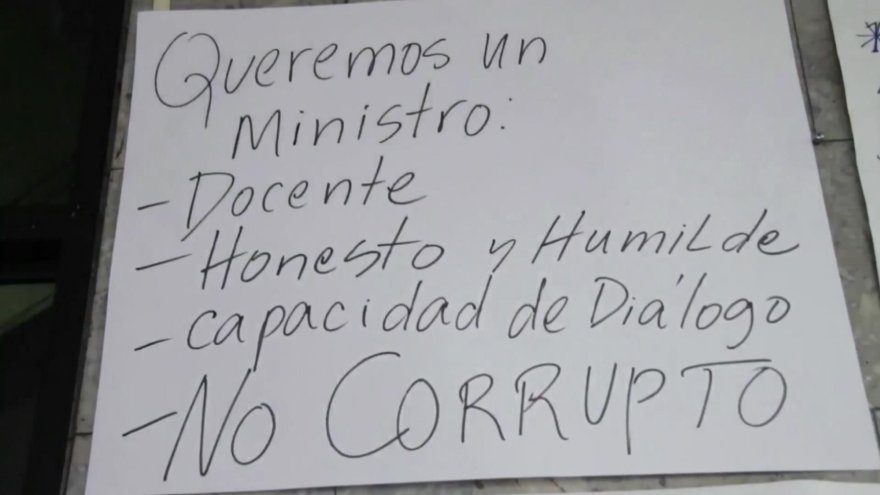 Queremos un
Ministro:
- Docente
- Honesto y Humilde
- capacidad de Diálogo
- No CORRUPTO